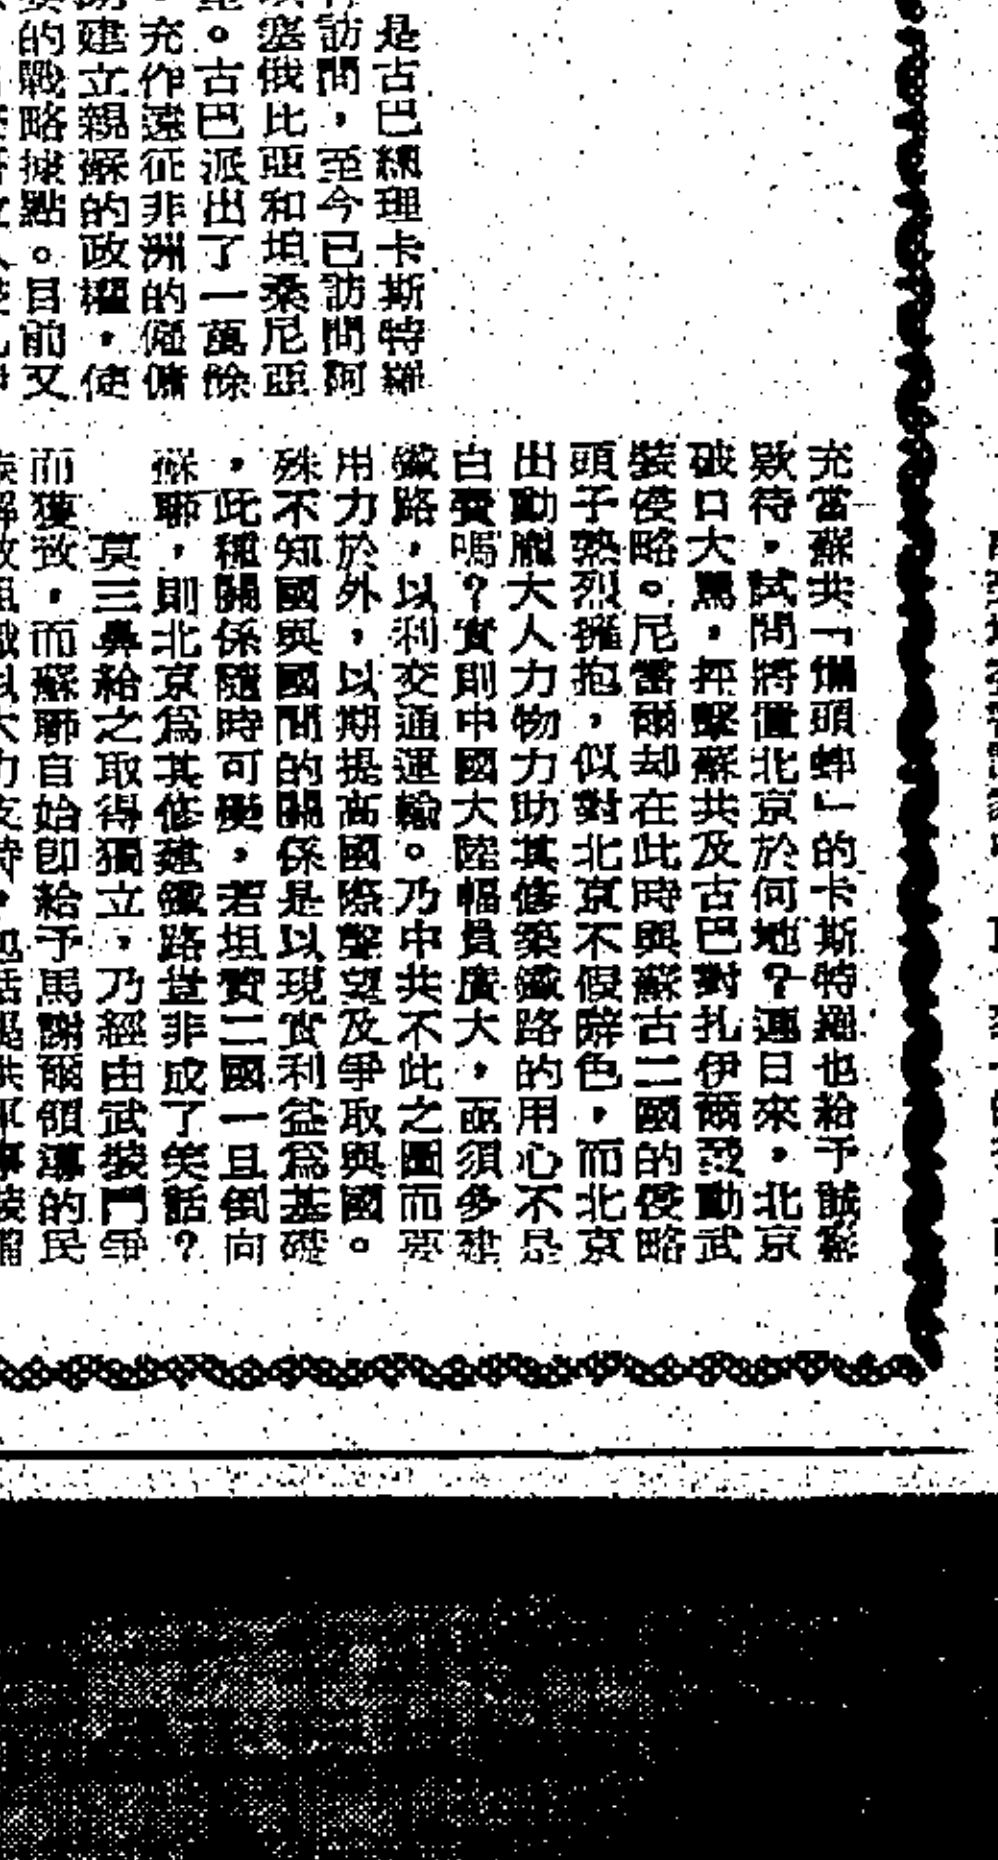 是古巴總理卡斯特羅
訪問,至今已訪問阿
塞俄比亞和坦桑尼亞
。古巴派出了一萬餘
充作遠征非洲的僱傭
建立親蘇的政權,使
的戰略據點。目前又
充當蘇共「爛頭蟀」的卡斯特羅也給予誠懇
欵待,試問將置北京於何地?連日來,北京
破口大罵,抨擊蘇共及古巴對扎伊爾發動武
裝侵略。尼雷爾却在此時與蘇古二國的侵略
頭子熱烈擁抱,似對北京不假辭色,而北京
出動龐大人力物力助其修築鐵路的用心不是
白費嗎?實則中國大陸幅員廣大,亟須多建
鐵路,以利交通運輸。乃中共不此之圖而要
用力於外,以期提高國際聲望及爭取與國。
殊不知國與國間的關係是以現實利益爲基礎
,此種關係隨時可變,若坦贊二國一旦倒向
蘇聯,則北京爲其修建鐵路豈非成了笑話?
莫三鼻給之取得獨立,乃經由武裝鬥爭
而獲致,而蘇聯自始卽給予馬謝爾領導的民